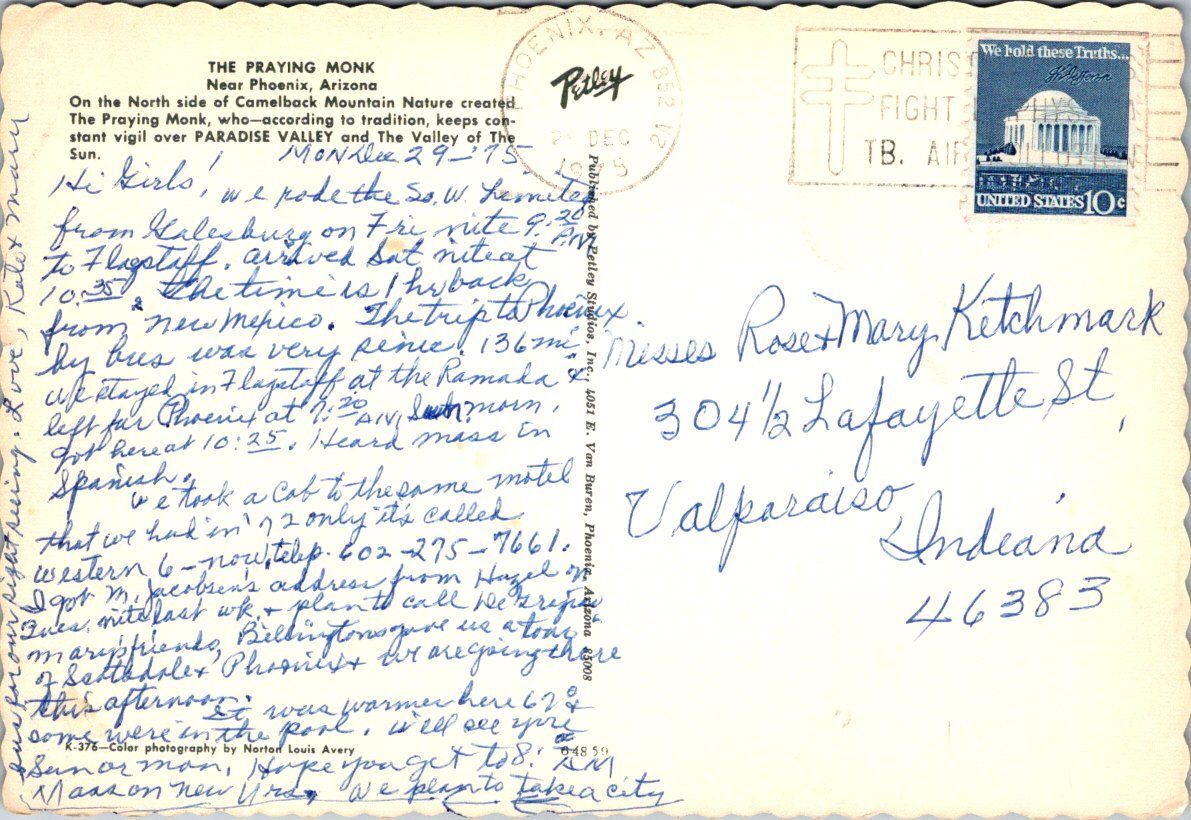 THE PRAYING MONK
Near Phoenix, Arizona
On the North side of Camelback Mountain Nature created
The Praying Monk, who—according to tradition, keeps con-
stant vigil over PARADISE VALLEY and The Valley of The
Sun.
Mon Dec 29 - '75
Hi Girls! we rode the So. W. Limited
from Galesburg on Fri nite 9:20 PM
to Flagstaff. arrived Sat nite at
10:35. The time is 1 hr back
from New Mexico. The trip to Phoenix
by bus was very scenic. 136 mi
we stayed in Flagstaff at the Ramada &
left for Phoenix at 7:20 AM, Sun morn.
got here at 10:25. Heard mass in
Spanish.
We took a Cab to the same motel
that we had in '72 only it's called
Western 6 - now, telep. 602-275-7661.
I got M. Jacobsen's address from Hazel on
Tues. nite last wk. & plan to call
mary's friends, Billingtons gave us a tour
of Scottsdale & Phoenix & we are going there
this afternoon.
It was warmer here 67° &
some were in the pool. We'll see you
Sun or mon. Hope you get to 8: AM
Mass on New Yrs. We plan to take a city
bus for our sight seeing. Love, Kate & Marie
K-376—Color photography by Norton Louis Avery
64859
Petley
Published by Petley Studios, Inc., 4051 E. Van Buren, Phoenix, Arizona 85008
PHOENIX, AZ 852
DEC
1975
21
CHRIS
FIGHT
TB. AIR
We hold these Truths...
UNITED STATES 10c
Misses Rose & Mary Ketchmark
304 1/2 Lafayette St,
Valparaiso,
Indiana
46383